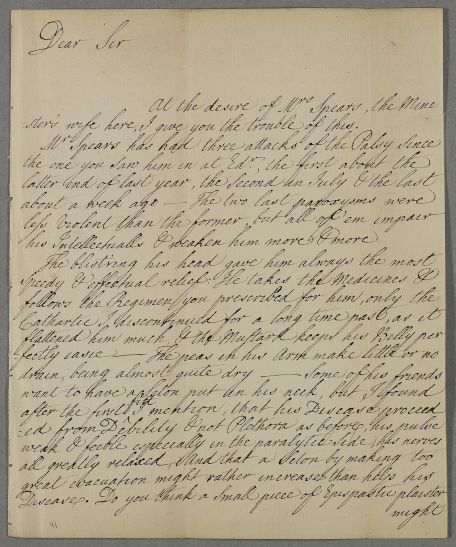 Dear Sir
At the desire of Mrs Spears, the Mine
ster's wife here, I give you the trouble of this.
Mr Spears has had three attacks of the Palsy since
the one you saw him in at Edr, the first about the
latter end of last year, the Second in July & the last
about a week ago — The two last paroxysms were
less violent than the former, but all of 'em impair
his Intellectualls & weaken him more & more
The blistring his head gave him always the most
speedy & effectual relief. He takes the Medicines &
follows the Regimen you prescribed for him, only the
Cathartic I discontinued for a long time past, as it
flattened him much, & the Mustard keeps his Belly per
fectly easie — The peas in his Arm make little or no
drain, being almost quite dry — Some of his friends
want to have a Seton put in his neck, but I found
after the first I mention, that his Disease proceed
=ed from Debility & not Plethora as before, his pulse
weak & feeble especially in the paralytic Side, his nerves
all greatly relaxed, And that a Seton by making too
great evacuation might rather increase than help his
Disease. Do you think a small piece of Epispastic plaister
might
91